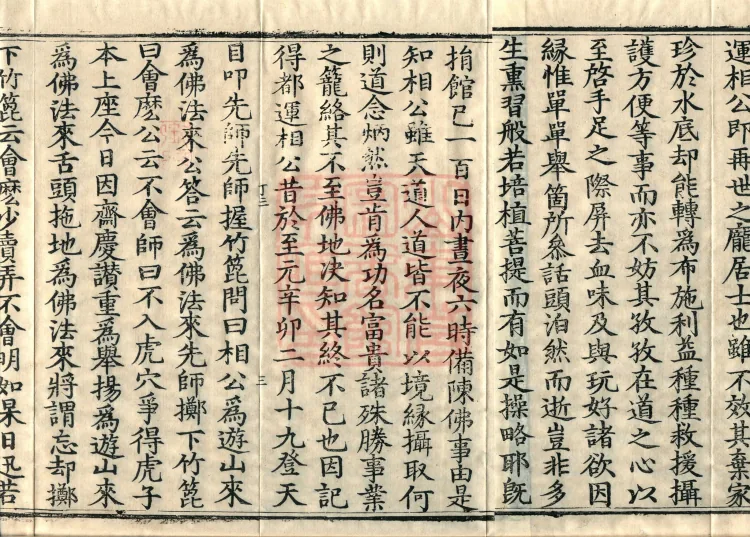 運相公即再世之龐居士也雖不效其棄家
珍於水底却能轉為布施利益種種救援攝
護方便等事而亦不妨其孜孜在道之心以
至啓手足之際屏去血味及與玩好諸欲因
緣惟單單舉箇所叅話頭泊然而逝豈非多
生熏習般若培植菩提而有如是操略耶旣
捐館已一百日内晝夜六時備陳佛事由是
知相公雖天道人道皆不能以境緣攝取何
則道念炳然豈肯為功名富貴諸殊勝事業
之籠絡其不至佛地決知其終不已也因記
得都運相公昔於至元辛卯二月十九登天
目叩先師先師握竹篦問曰相公為遊山來
為佛法來公答云為佛法來先師擲下竹篦
曰會麽公云不會師曰不入虎穴爭得虎子
本上座今日因齋慶讃重為舉揚為遊山來
為佛法來舌頭拖地為佛法來將謂忘却擲
下竹篦云會麽少賣弄不會明如杲日迅若
三